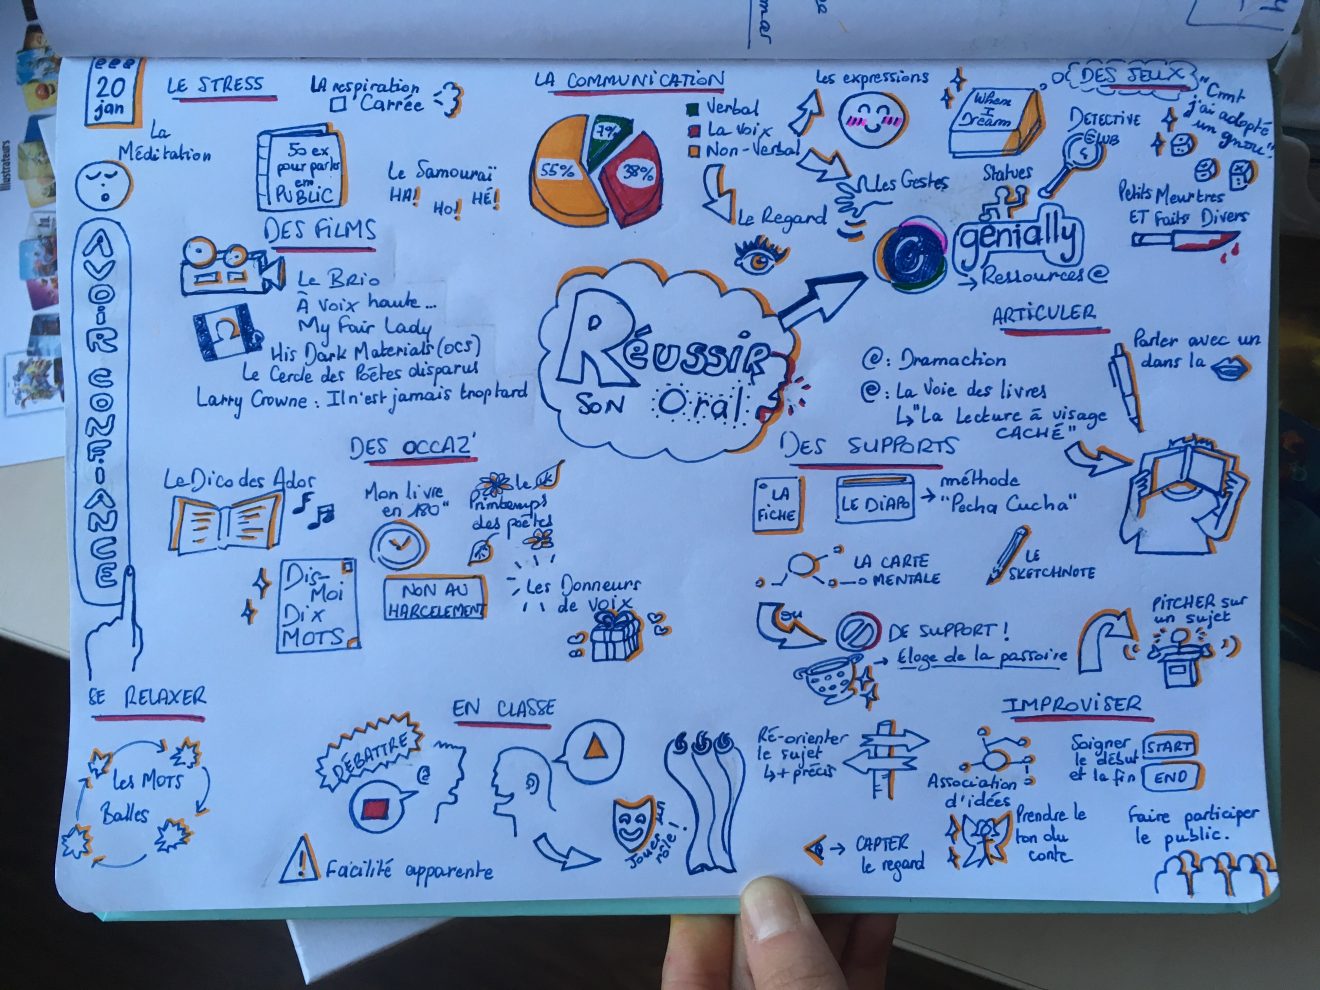 20
jan
LE STRESS
LA respiration
Carrée
La
Méditation
50 ex
pour parler
en
PUBLIC
Le Samouraï
HA!
Ho!
HÉ!
AVOIR CONFIANCE
DES FILMS
Le Brio
À Voix haute...
My Fair Lady
His Dark Materials (OCS)
Le Cercle des Poètes disparus
Larry Crowne : Il n'est jamais trop tard
LA COMMUNICATION
7%
55%
38%
Verbal
La voix
Non-Verbal
Les expressions
Les Gestes
Le Regard
DES JEUX
When
I
Dream
DETECTIVE
CLUB
"Cmt
j'ai adopté
un gnou"
Statues
Petits Meurtres
ET Faits Divers
genially
Ressources @
RÉUSSIR
SON Oral
ARTICULER
@: Dramaction
@: La Voie des livres
"La Lecture à visage
CACHÉ"
Parler avec un
dans la
DES OCCAZ'
Le Dico des Ados
Mon livre
en 180"
le
Printemps
des poètes
Dis-
Moi
Dix
MOTS
NON AU
HARCELEMENT
Les Donneurs
de voix
DES SUPPORTS
LA
FICHE
LE DIAPO
méthode
"Pecha Cucha"
LA CARTE
MENTALE
LE
SKETCHNOTE
ou
DE SUPPORT !
Eloge de la passoire
PITCHER sur
un sujet
SE RELAXER
Les Mots
Balles
EN CLASSE
DÉBATTRE
Facilité apparente
Jouer un
rôle !
IMPROVISER
RÉ-orienter
le sujet
+ précis
Association
d'idées
Soigner
le début
et la fin
START
END
CAPTER
le regard
Prendre le
ton du
conte
Faire participer
le public.
Illustrateurs